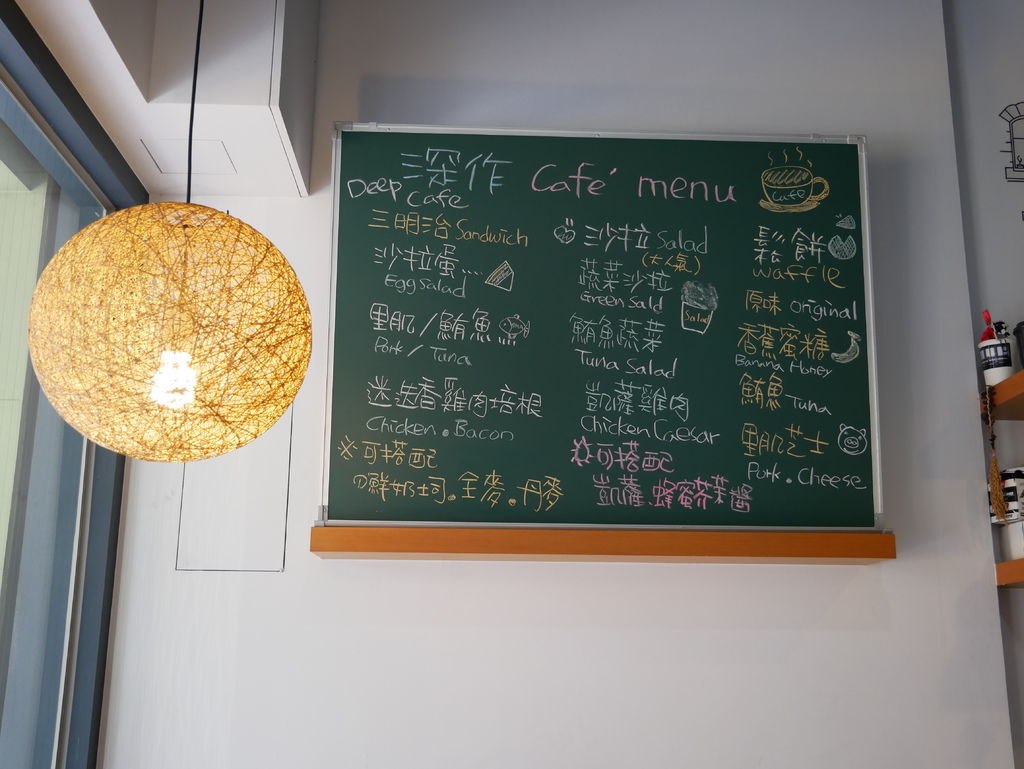 深作 Café menu
Deep Cafe
Cafe
三明治 Sandwich
沙拉蛋....
Egg salad
里肌/鮪魚
Pork / Tuna
迷迭香雞肉培根
Chicken . Bacon
※可搭配
鮮奶吐司.全麥.丹麥
沙拉 Salad
(大人氣)
蔬菜沙拉
Green Sald
Salad
鮪魚蔬菜
Tuna Salad
凱薩雞肉
Chicken Caesar
可搭配
凱薩.蜂蜜芥茉醬
鬆餅
waffle
原味 original
香蕉蜜糖
Banana Honey
鮪魚 Tuna
里肌芝士
Pork . Cheese